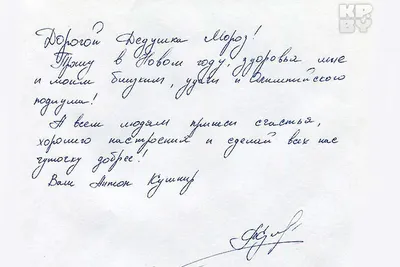 KP
BY
Дорогой Дедушка Мороз!
Прошу в Новом году, здоровья мне
и моим близким, удачи и Олимпийского
подиума!
А всем людям принеси счастья,
хорошего настроения и сделай всех нас
чуточку добрее!
Ваш Антон Кушнир